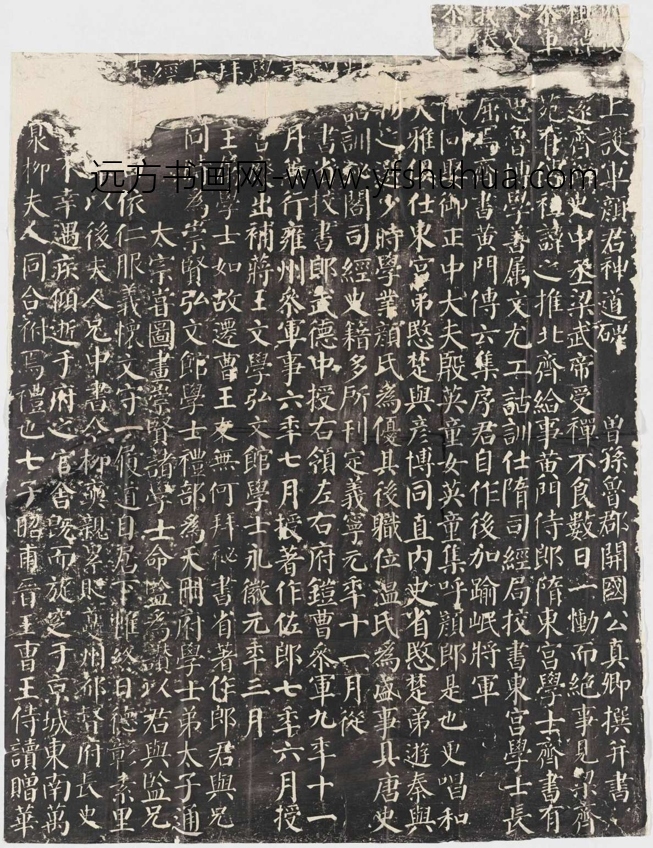 上護軍顏君神道碑 曾孫魯郡開國公真卿撰并書
遠齊御史中丞梁武帝受禪不食數日一慟而絕事見梁齊
苑有傳祖諱之推北齊給事黃門侍郎隋東宮學士齊書有
思魯博學善屬文尤工詁訓仕隋司經局挍書東宮學士長
屈焉齊書黃門傳云集序君自作後加踰岷將軍
儀同娶御正中大夫殷英童女英童集呼顏郎是也更唱和
大雅俱仕東宮弟愍楚與彥博同直內史省愍楚弟遊秦與
物之選少時學業顏氏為優其後職位溫氏為盛事具唐史
詁訓秘閣司經史籍多所刊定義寧元年十一月從
書省挍書郎武德中授右領左右府鎧曹參軍九年十一
月兼行雍州參軍事六年七月授著作佐郎七年六月授
宮廢出補蔣王文學弘文館學士永徽元年三月
王屬學士如故遷曹王友無何拜秘書省著作郎君與兄
同時為崇賢弘文館學士禮部為天冊府學士弟太子通
太宗嘗圖畫崇賢諸學士命監為讚以君與監兄
依仁服義懷文守一履道自居下帷終日德彰素里
年以後夫人兄中書令柳奭親累貶夔州都督府長史
不幸遇疾傾逝于府之官舍既而旋窆于京城東南萬
泉柳夫人同合祔焉禮也七子昭甫晉王曹王侍讀贈華
远方书画网-www.yfshuhua.com